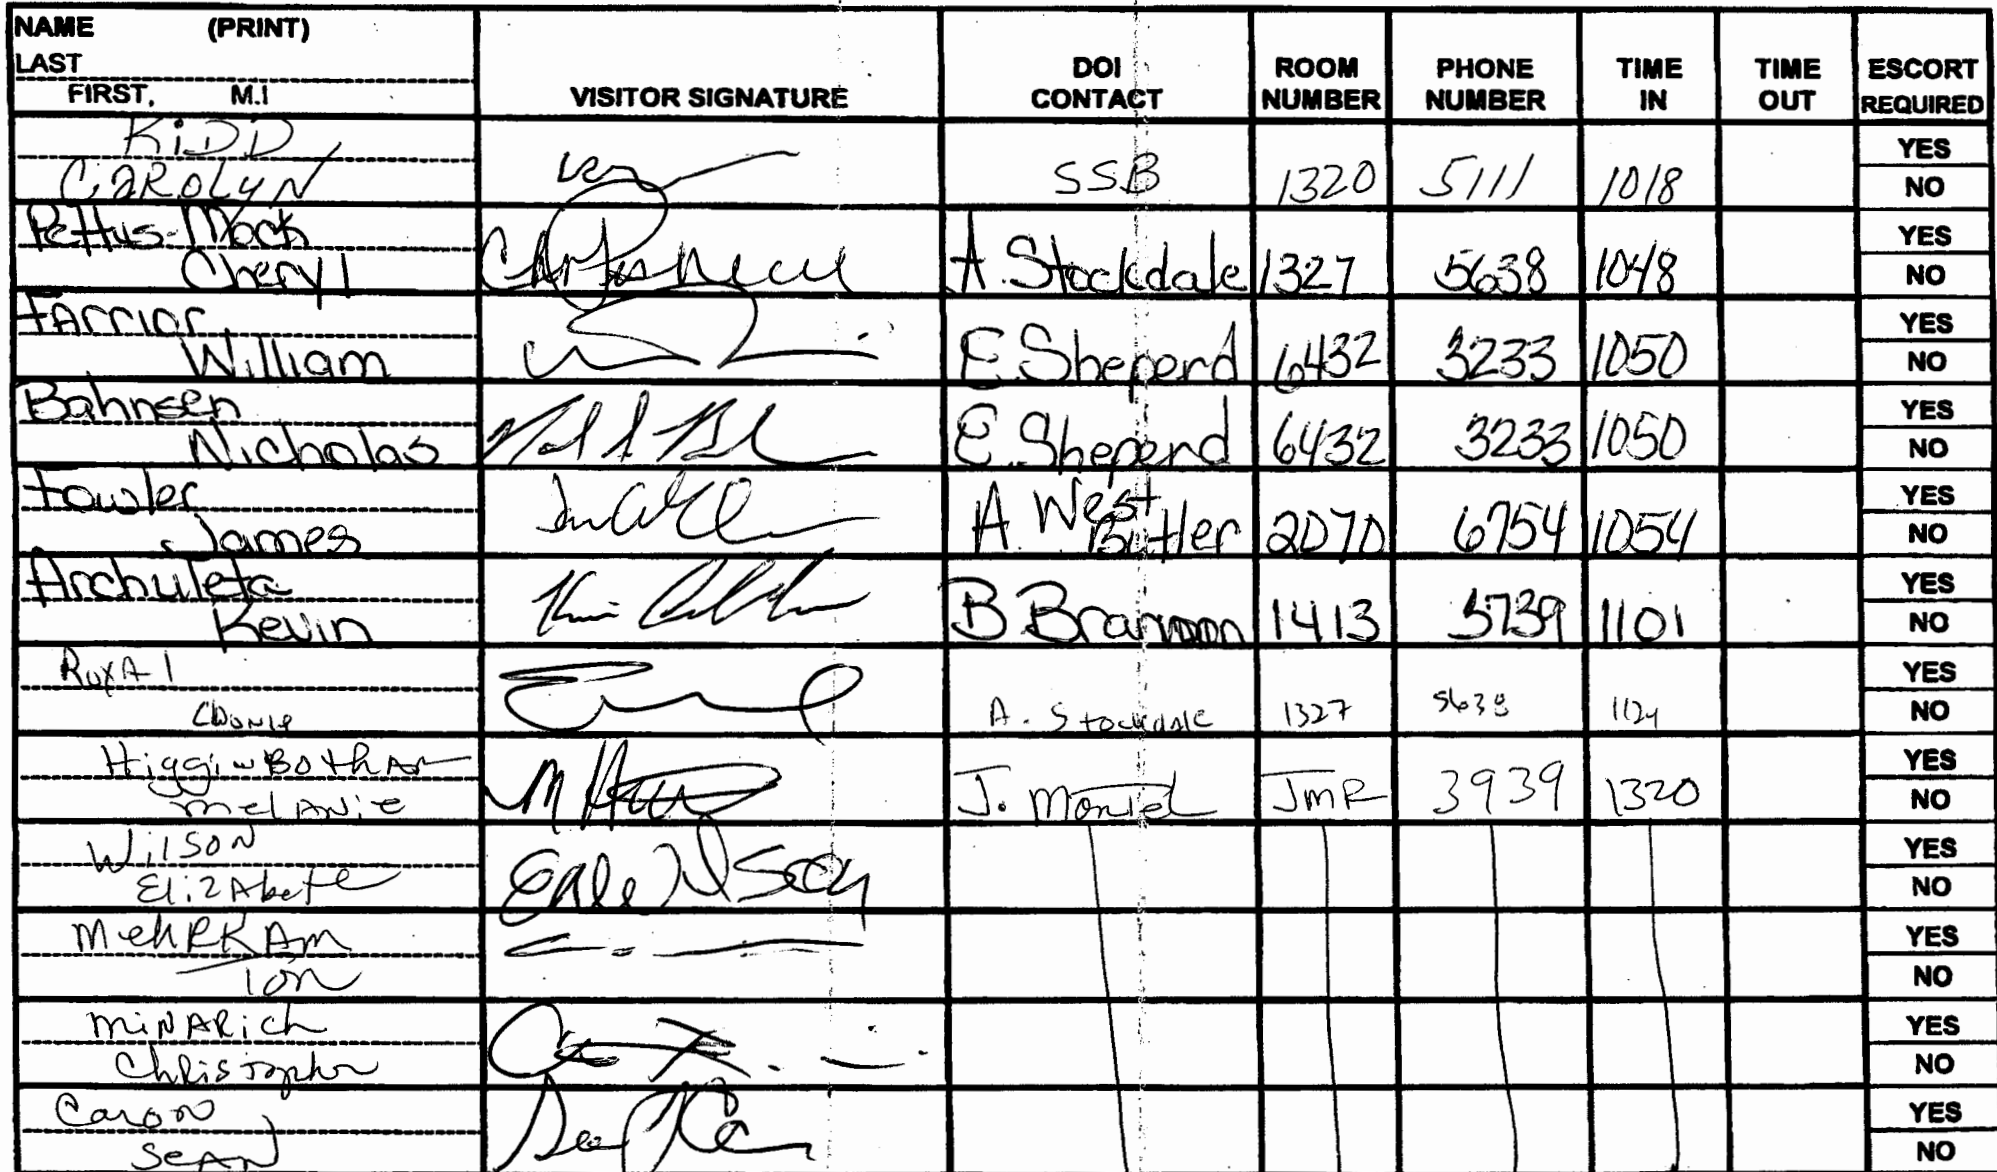 NAME (PRINT)
LAST
FIRST, M.I
VISITOR SIGNATURE
DOI CONTACT
ROOM NUMBER
PHONE NUMBER
TIME IN
TIME OUT
ESCORT REQUIRED
KIDD
CAROLYN
SSB 1320 5111 1018
YES
NO
Pettus-Mock
Cheryl
A. Stockdale 1327 5638 1048
YES
NO
Farrior
William
E. Sheperd 6432 3233 1050
YES
NO
Bahnsen
Nicholas
E. Sheperd 6432 3233 1050
YES
NO
Fowler
James
A. West Butler 2070 6754 1054
YES
NO
Archuleta
Kevin
B 1413 5739 1101
YES
NO
A. Stockdale 1327 5638 1124
YES
NO
HigginBotham
MelANie
J. 3939 1320
YES
NO
WilSON
ElizAbeth
YES
NO
MehRKAm
YES
NO
MiNARich
Christopher
YES
NO
Caron
SeAN
YES
NO